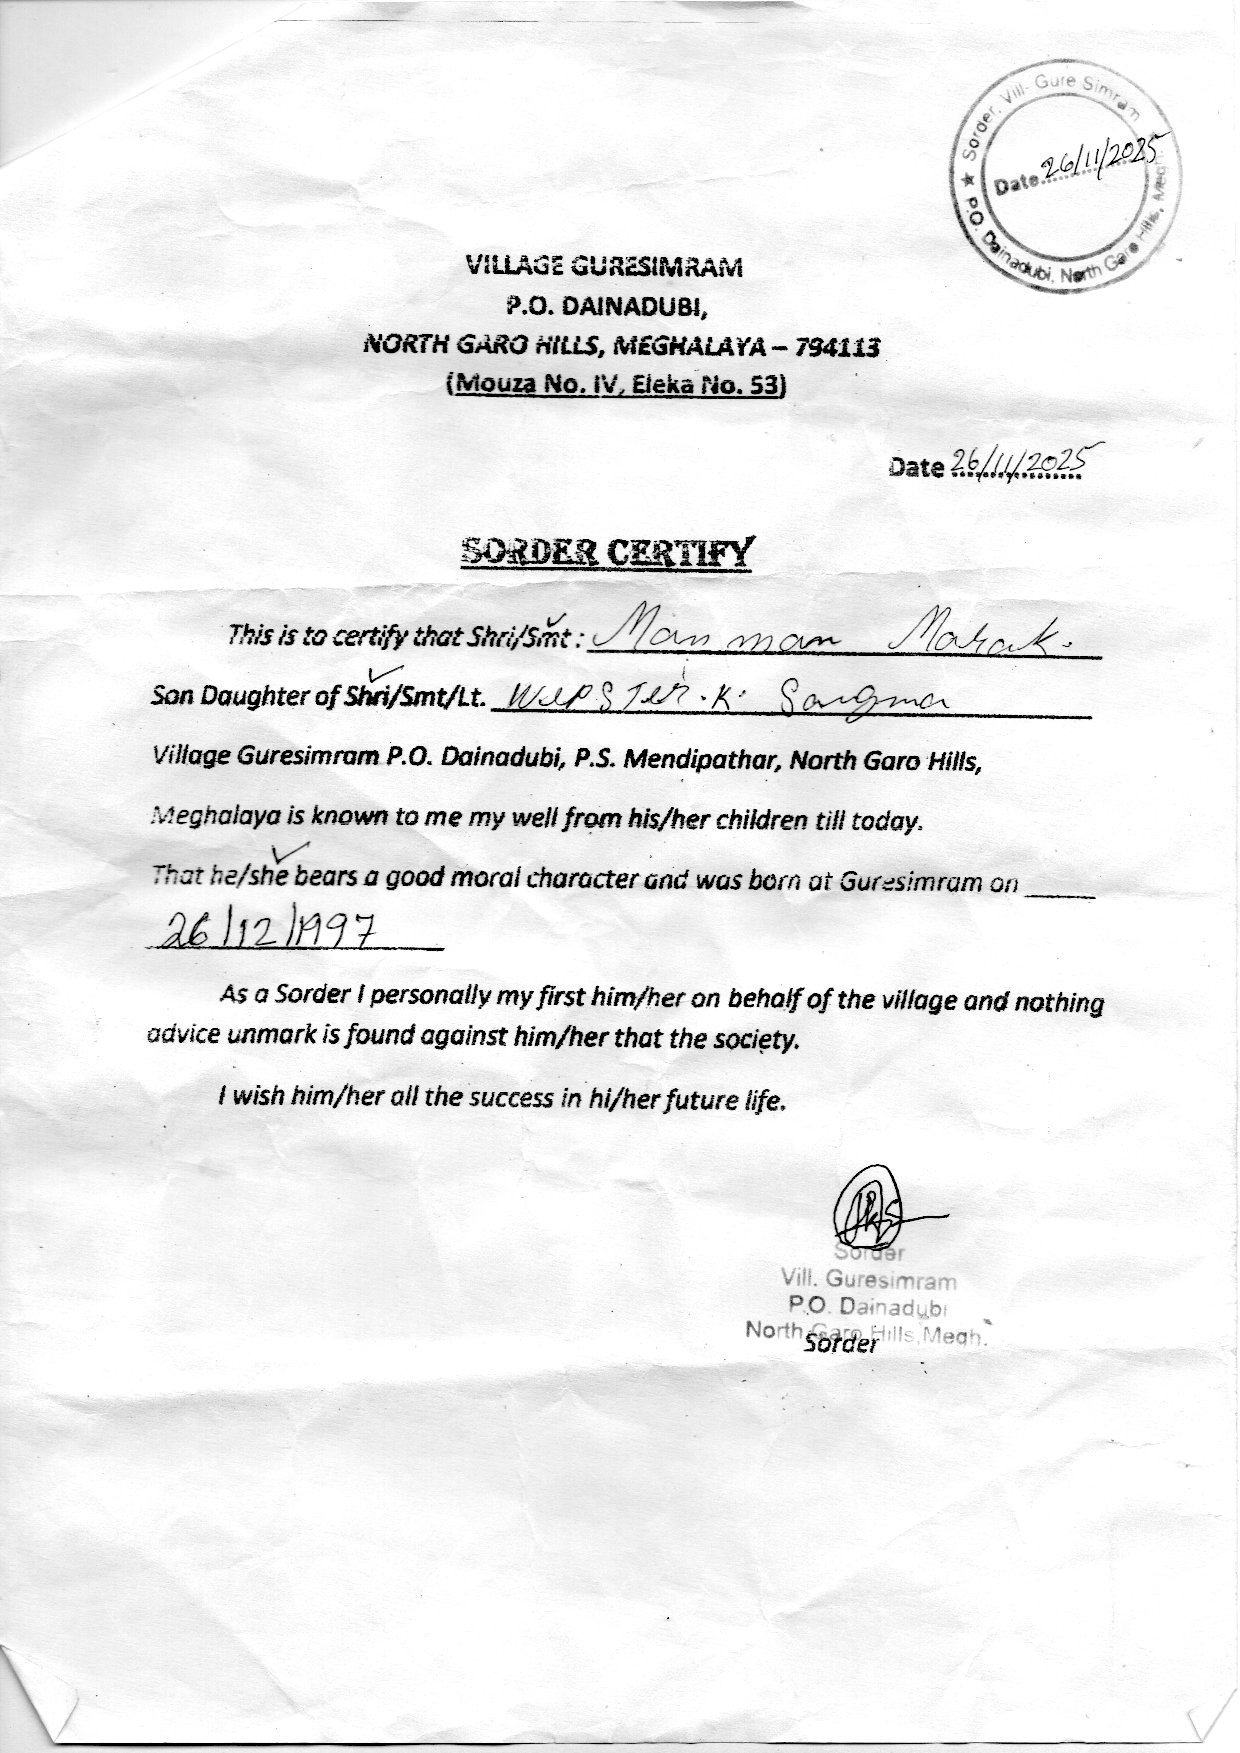 ★ Sorder, Vill- Gure Simram
P.O. Dainadubi, North Garo Hills, Megh.
Date 26/11/2025
VILLAGE GURESIMRAM
P.O. DAINADUBI,
NORTH GARO HILLS, MEGHALAYA – 794113
(Mouza No. IV, Eleka No. 53)
Date 26/11/2025
SORDER CERTIFY
This is to certify that Shri/Smt : Manman Marak.
Son Daughter of Shri/Smt/Lt. WEPSTER.K. Sangma
Village Guresimram P.O. Dainadubi, P.S. Mendipathar, North Garo Hills,
Meghalaya is known to me my well from his/her children till today.
That he/she bears a good moral character and was born at Guresimram on
26/12/1997
As a Sorder I personally my first him/her on behalf of the village and nothing
advice unmark is found against him/her that the society.
I wish him/her all the success in hi/her future life.
Sorder
Vill. Guresimram
P.O. Dainadubi
North Garo Hills, Megh.
Sorder